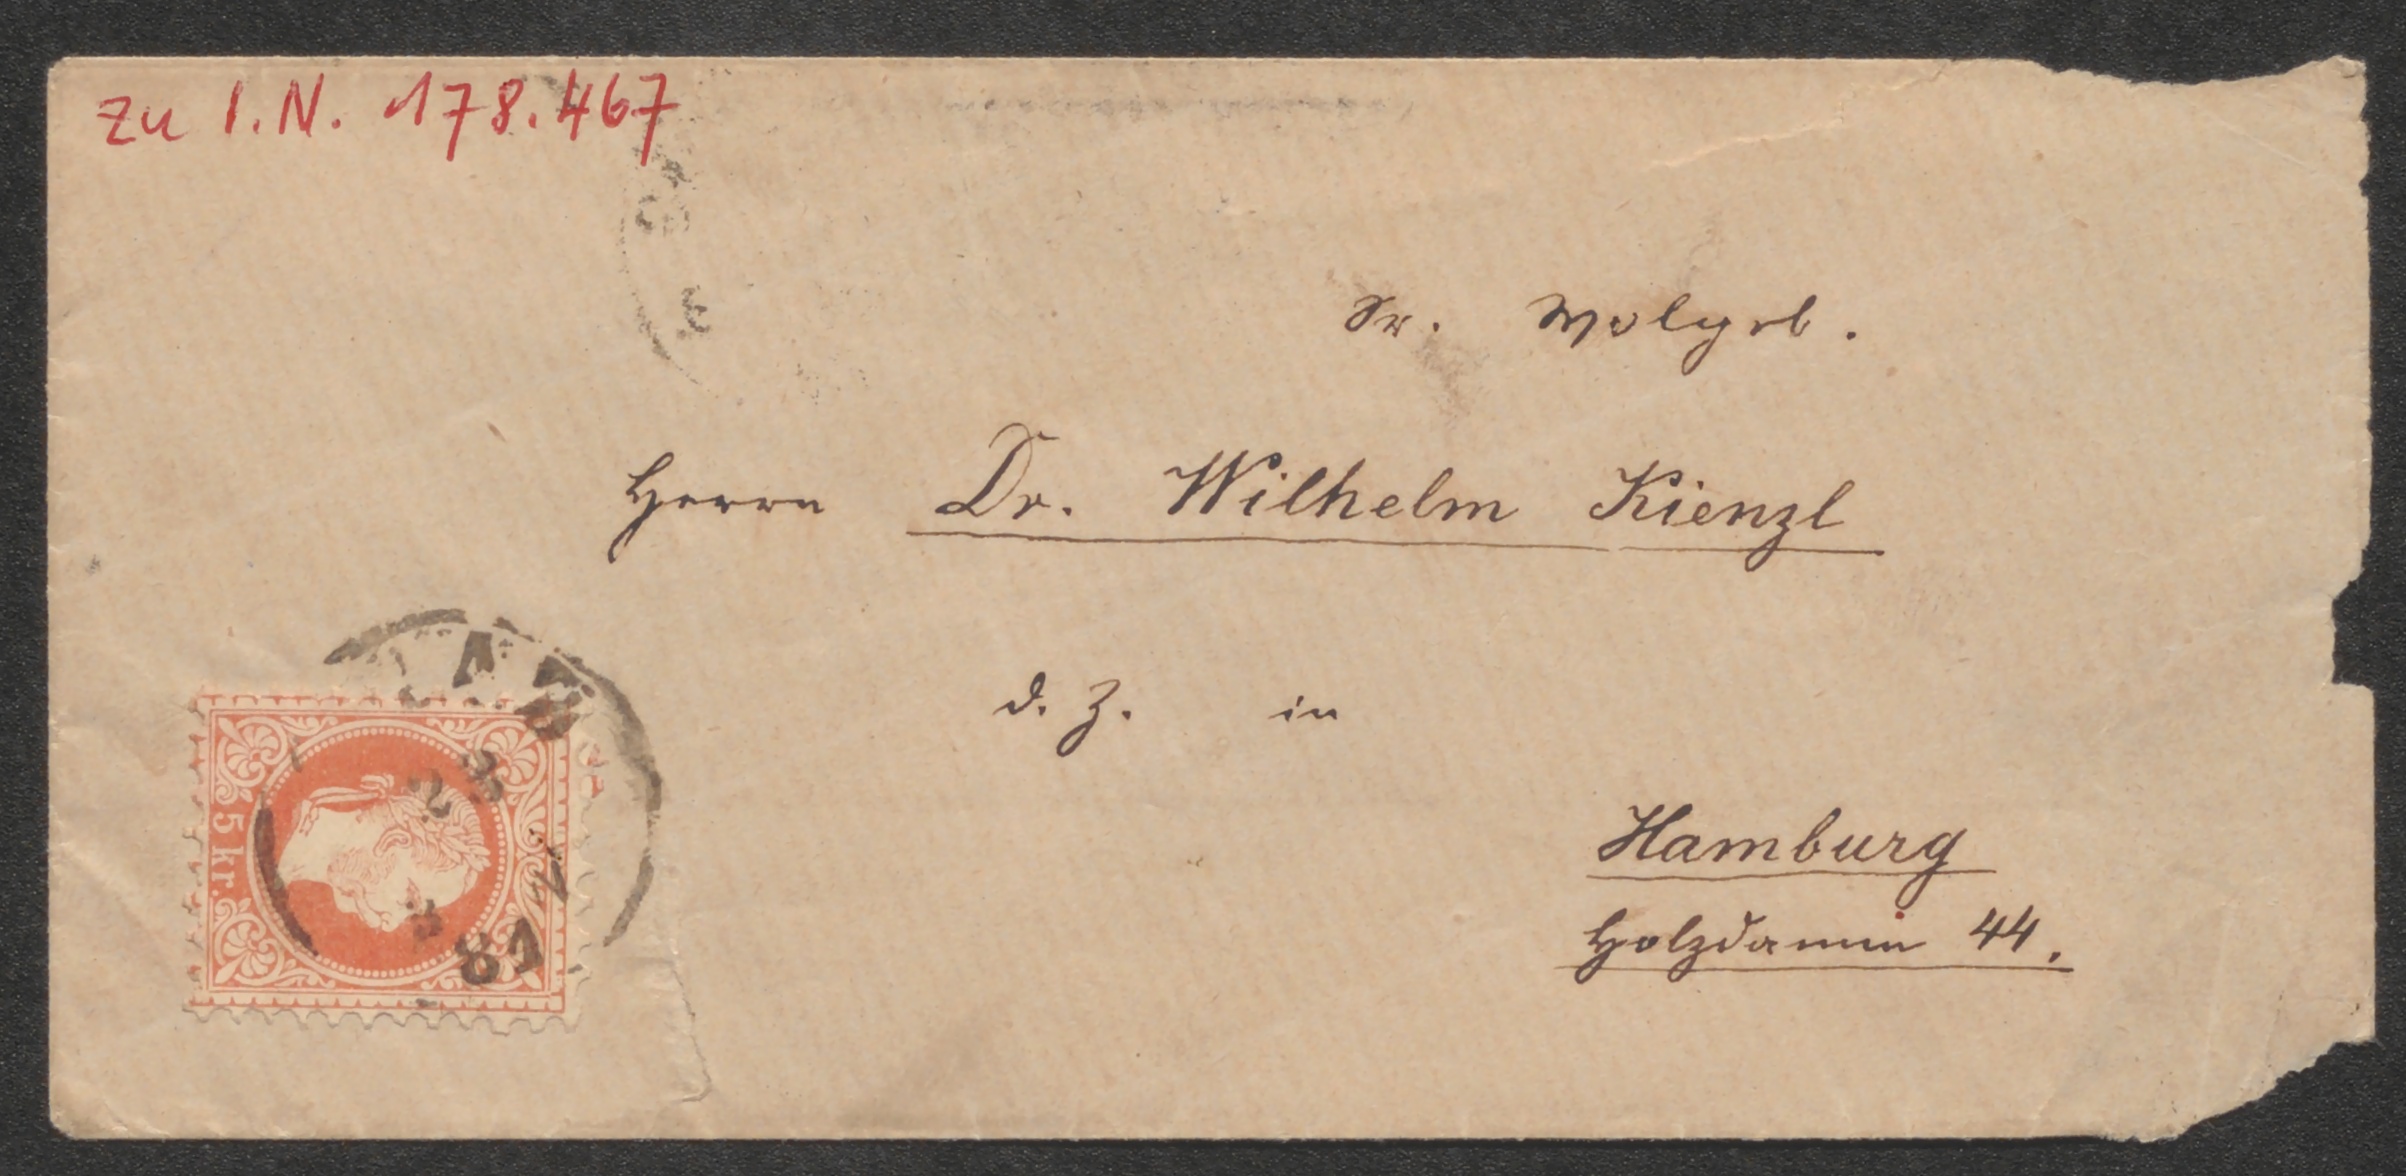 zu I.N. 178.467
Sr. Wolgeb.
Herrn Dr. Wilhelm Kienzl
d. Z. in
Hamburg
Holzdamm 44.
5 kr.
81